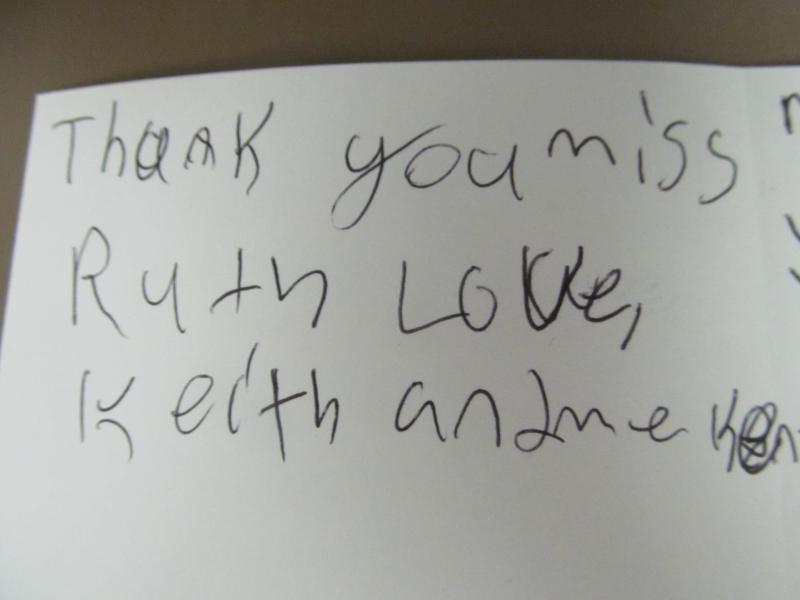 Thank you miss
Ruth Love,
Keith and me